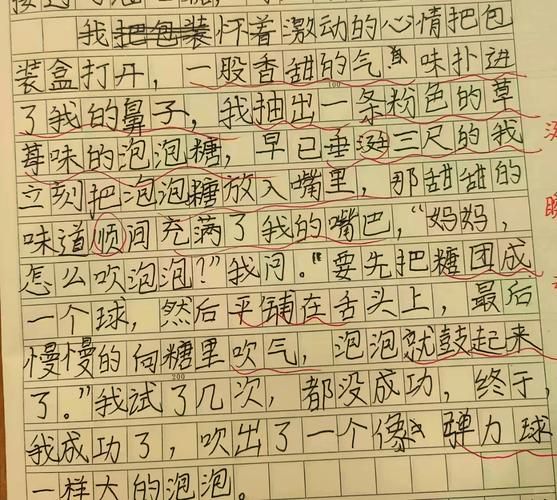 我把包装怀着激动的心情把包
装盒打开，一股香甜的气息味扑进
了我的鼻子，我抽出一条粉色的草
莓味的泡泡糖，早已垂涎三尺的我
立刻把泡泡糖放入嘴里，那甜甜的
味道顺间充满了我的嘴巴，“妈妈，
怎么吹泡泡？”我问。“要先把糖团成
一个球，然后平铺在舌头上，最后
慢慢的向糖里吹气，泡泡就鼓起来
了。”我试了几次，都没成功，终于，
我成功了，吹出了一个像 弹力球
一样大的泡泡。